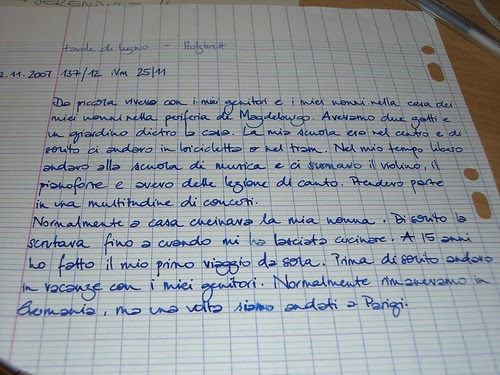 tavole di legno - Holzbrett
2.11.2007 137/12 iVm 25/11
Da piccola vivevo con i miei genitori e i miei nonni nella casa dei
miei nonni nella periferia di Magdeburgo. Avevamo due gatti e
un giardino dietro la casa. La mia scuola era nel centro e di
solito ci andavo in bicicletta o nel tram. Nel mio tempo libero
andavo alla scuola di musica e ci suonavo il violino, il
pianoforte e avevo delle lezione di canto. Prendevo parte
in una multitudine di concerti.
Normalmente a casa cucinava la mia nonna. Di solito la
scrutava fino a cuando mi ha lasciata cucinare. A 15 anni
ho fatto il mio primo viaggio da sola. Prima di solito andavo
in vacanze con i miei genitori. Normalmente rimanevamo in
Germania, ma una volta siamo andati a Parigi.